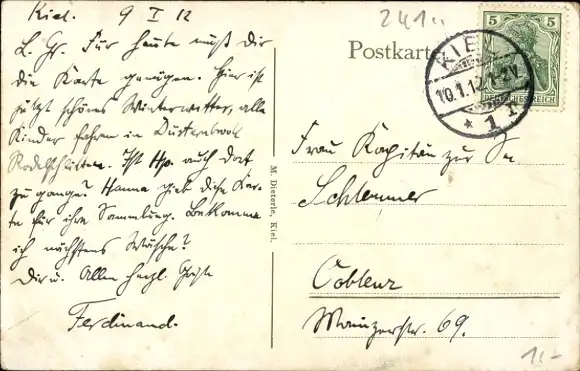 Kiel. 9 I 12
L. Gr. Für heute muß dir
die Karte genügen. Hier ist
jetzt schönes Winterwetter, alle
Kinder fahren in Düsternbrook
Rodelschlitten. Ist Hp. auch dort
zu gange? Hanna gieb diese Kar-
te für ihre Sammlung. Bekomme
ich nächstens Wäsche?
Dir u. Allen herzl. Grüße
Ferdinand.
M. Dieterle, Kiel.
241..
Postkarte
5 5
DEUTSCHES REICH
KIEL
10.1.12.1-2V.
* 1
Frau Kapitän zur See
Schlemmer
Coblenz
Mainzerstr. 69.
1.-